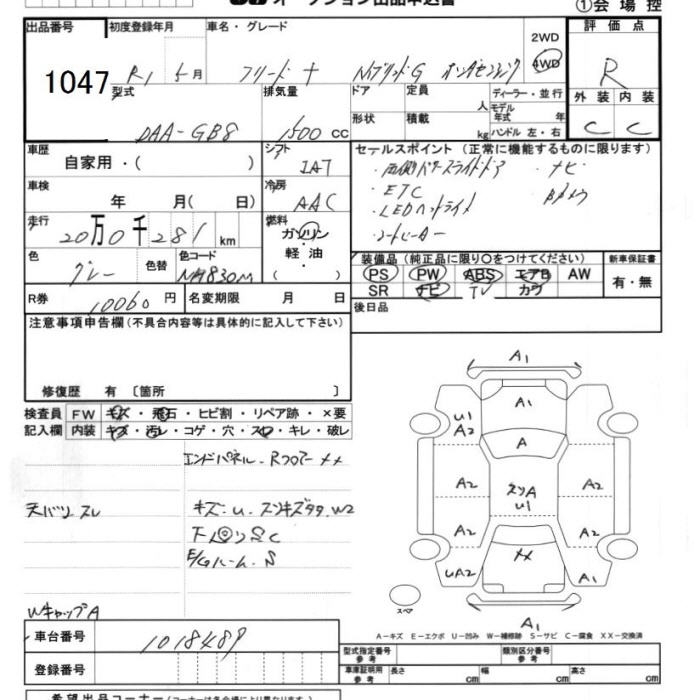 オークション出品申込書
①会場控
出品番号
1047
初度登録年月
R1 5月
車名・グレード
フリード+ HVブリッドG ホンダセンシング
2WD
4WD
評価点
R
型式
DAA-GB8
排気量
1500 cc
ドア
形状
定員
人
積載
kg
ディーラー・並行
モデル年式 年
ハンドル 左・右
外装 内装
C C
車歴
自家用・( )
シフト
IAT
車検
年 月( 日)
冷房
AAC
走行
20万0千281km
燃料
ガソリン
軽・油
( )
色
グレー
色替
色コード
NH830M
R券
10060円
名変期限 月 日
セールスポイント(正常に機能するものに限ります)
・両側パワースライドドア ・ナビ
・ETC ・Bカメラ
・LEDヘッドライト
・シートヒーター
装備品(純正品に限り〇をつけてください)
PS PW ABS エアB AW
SR ナビ TV カワ
新車保証書
有・無
後日品
注意事項申告欄(不具合内容等は具体的に記入して下さい)
修復歴 有〔箇所 〕
検査員記入欄
FW キズ・飛石・ヒビ割・リペア跡・×要
内装 キズ・汚レ・コゲ・穴・スレ・キレ・破レ
エンドパネル・Rフロアーメメ
天バリ スレ
キズ・U・スリキズタタ W2
下廻りS.C
E/Gルーム S
WキャップA
A1
A1
U1
A2
A
A2
A2
スリA
U1
A2
A2
メメ
UA2
A1
スペア
A1
A-キズ E-エクボ U-凹み W-補修跡 S-サビ C-腐食 XX-交換済
車台番号
1018489
登録番号
型式指定番号
参考
類別区分番号
参考
車庫証明用
参考
長さ cm 幅 cm 高さ cm
希望出品コーナー